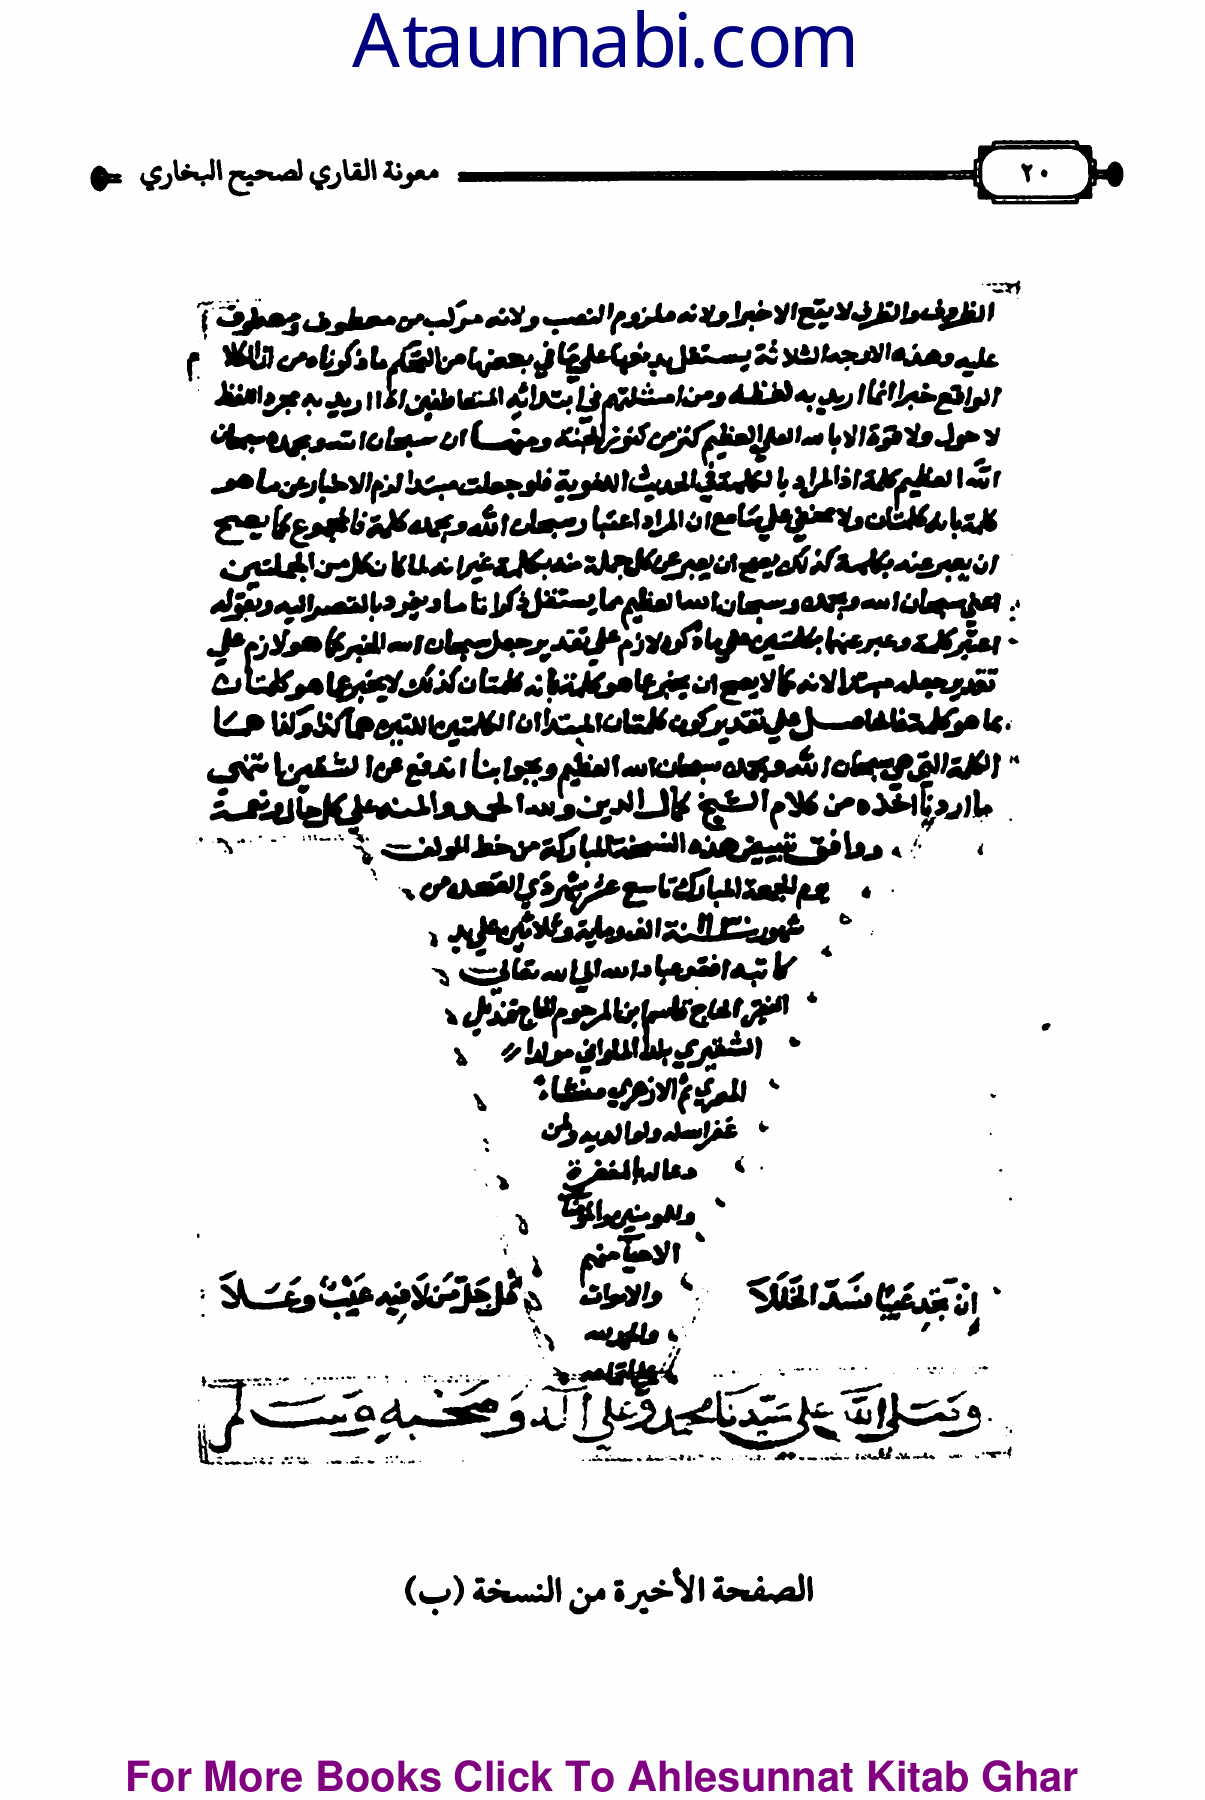 Ataunnabi.com
٢٠
معونة القاري لصحيح البخاري
الظروف والظرف لا يقع الا خبرا ولانه ملزوم النصب ولانه مركب من معطوف ومعطوف
عليه وهذه الاوجه الثلاثة يستقل بدفعها على ما في بعضها من التحكم ما ذكرناه من ان الكلا
م
الواقع خبرا انما اريد به لفظه ومن امثلتهم في ابتدائه المتعاطفين اذا اريد به مجرد اللفظ
لا حول ولا قوة الا بالله العلي العظيم كنز من كنوز الجنة ومنها ان سبحان الله وبحمده سبحان
الله العظيم كلمة اذ المراد بالكلمة في الحديث اللغوية فلو جعلت مبتدا لزم الاخبار عن ما هو
كلمة بانه كلمتان ولا يخفى على سامع ان المراد اعتبار سبحان الله وبحمده كلمة فالمجموع كما يصح
ان يعبر عنه بكلمة كذلك يصح ان يعبر عن كل جملة منه بكلمة غير انه لما كان كل من الجملتين
اعني سبحان الله وبحمده وسبحان الله العظيم مما يستقل ذكرا تاما ويفرد بالقصد اليه وبقوله
اعتبر كلمة وعبر عنها بكلمتين على ما ذكره لازم على تقدير جعل سبحان الله الخبر كما هو لازم على
تقدير جعله مبتدا لانه كما لا يصح ان يخبر عما هو كلمة بانه كلمتان كذلك لا يخبر عما هو كلمتان
بما هو كلمة فالحاصل على تقدير كون كلمتان المبتدا ان الكلمتين اللتين هما كذا وكذا هما
الكلمة التي هي سبحان الله وبحمده سبحان الله العظيم وبجوابنا اندفع عن الشقين انتهى
ما اردنا اخذه من كلام الشيخ كمال الدين ولله الحمد والمنه على كل حال ونعمة
ووافق تبييض هذه النسخة المباركة من خط المولف
يوم الجمعة المبارك تاسع عشر شهر ذي القعدة من
شهور سنة الف وماية وثلاثين على يد
كاتبه افقر عباد الله الى الله تعالى
الفقير الحاج قاسم ابن المرحوم الحاج قنديل
الشقيري بلدا الملواني مولدا
المصري ثم الازهري منشاء
غفر الله له ولوالديه ولمن
دعا له بالمغفرة
وللمومنين والمومنات
الاحيآ منهم
والاموات
إن تجد عيبا فسد الخللا
جل من لا فيه عيب وعلا
والحمد لله
على التمام
وصلى الله على سيدنا محمد وعلى آله وصحبه وسلم
الصفحة الأخيرة من النسخة (ب)
For More Books Click To Ahlesunnat Kitab Ghar